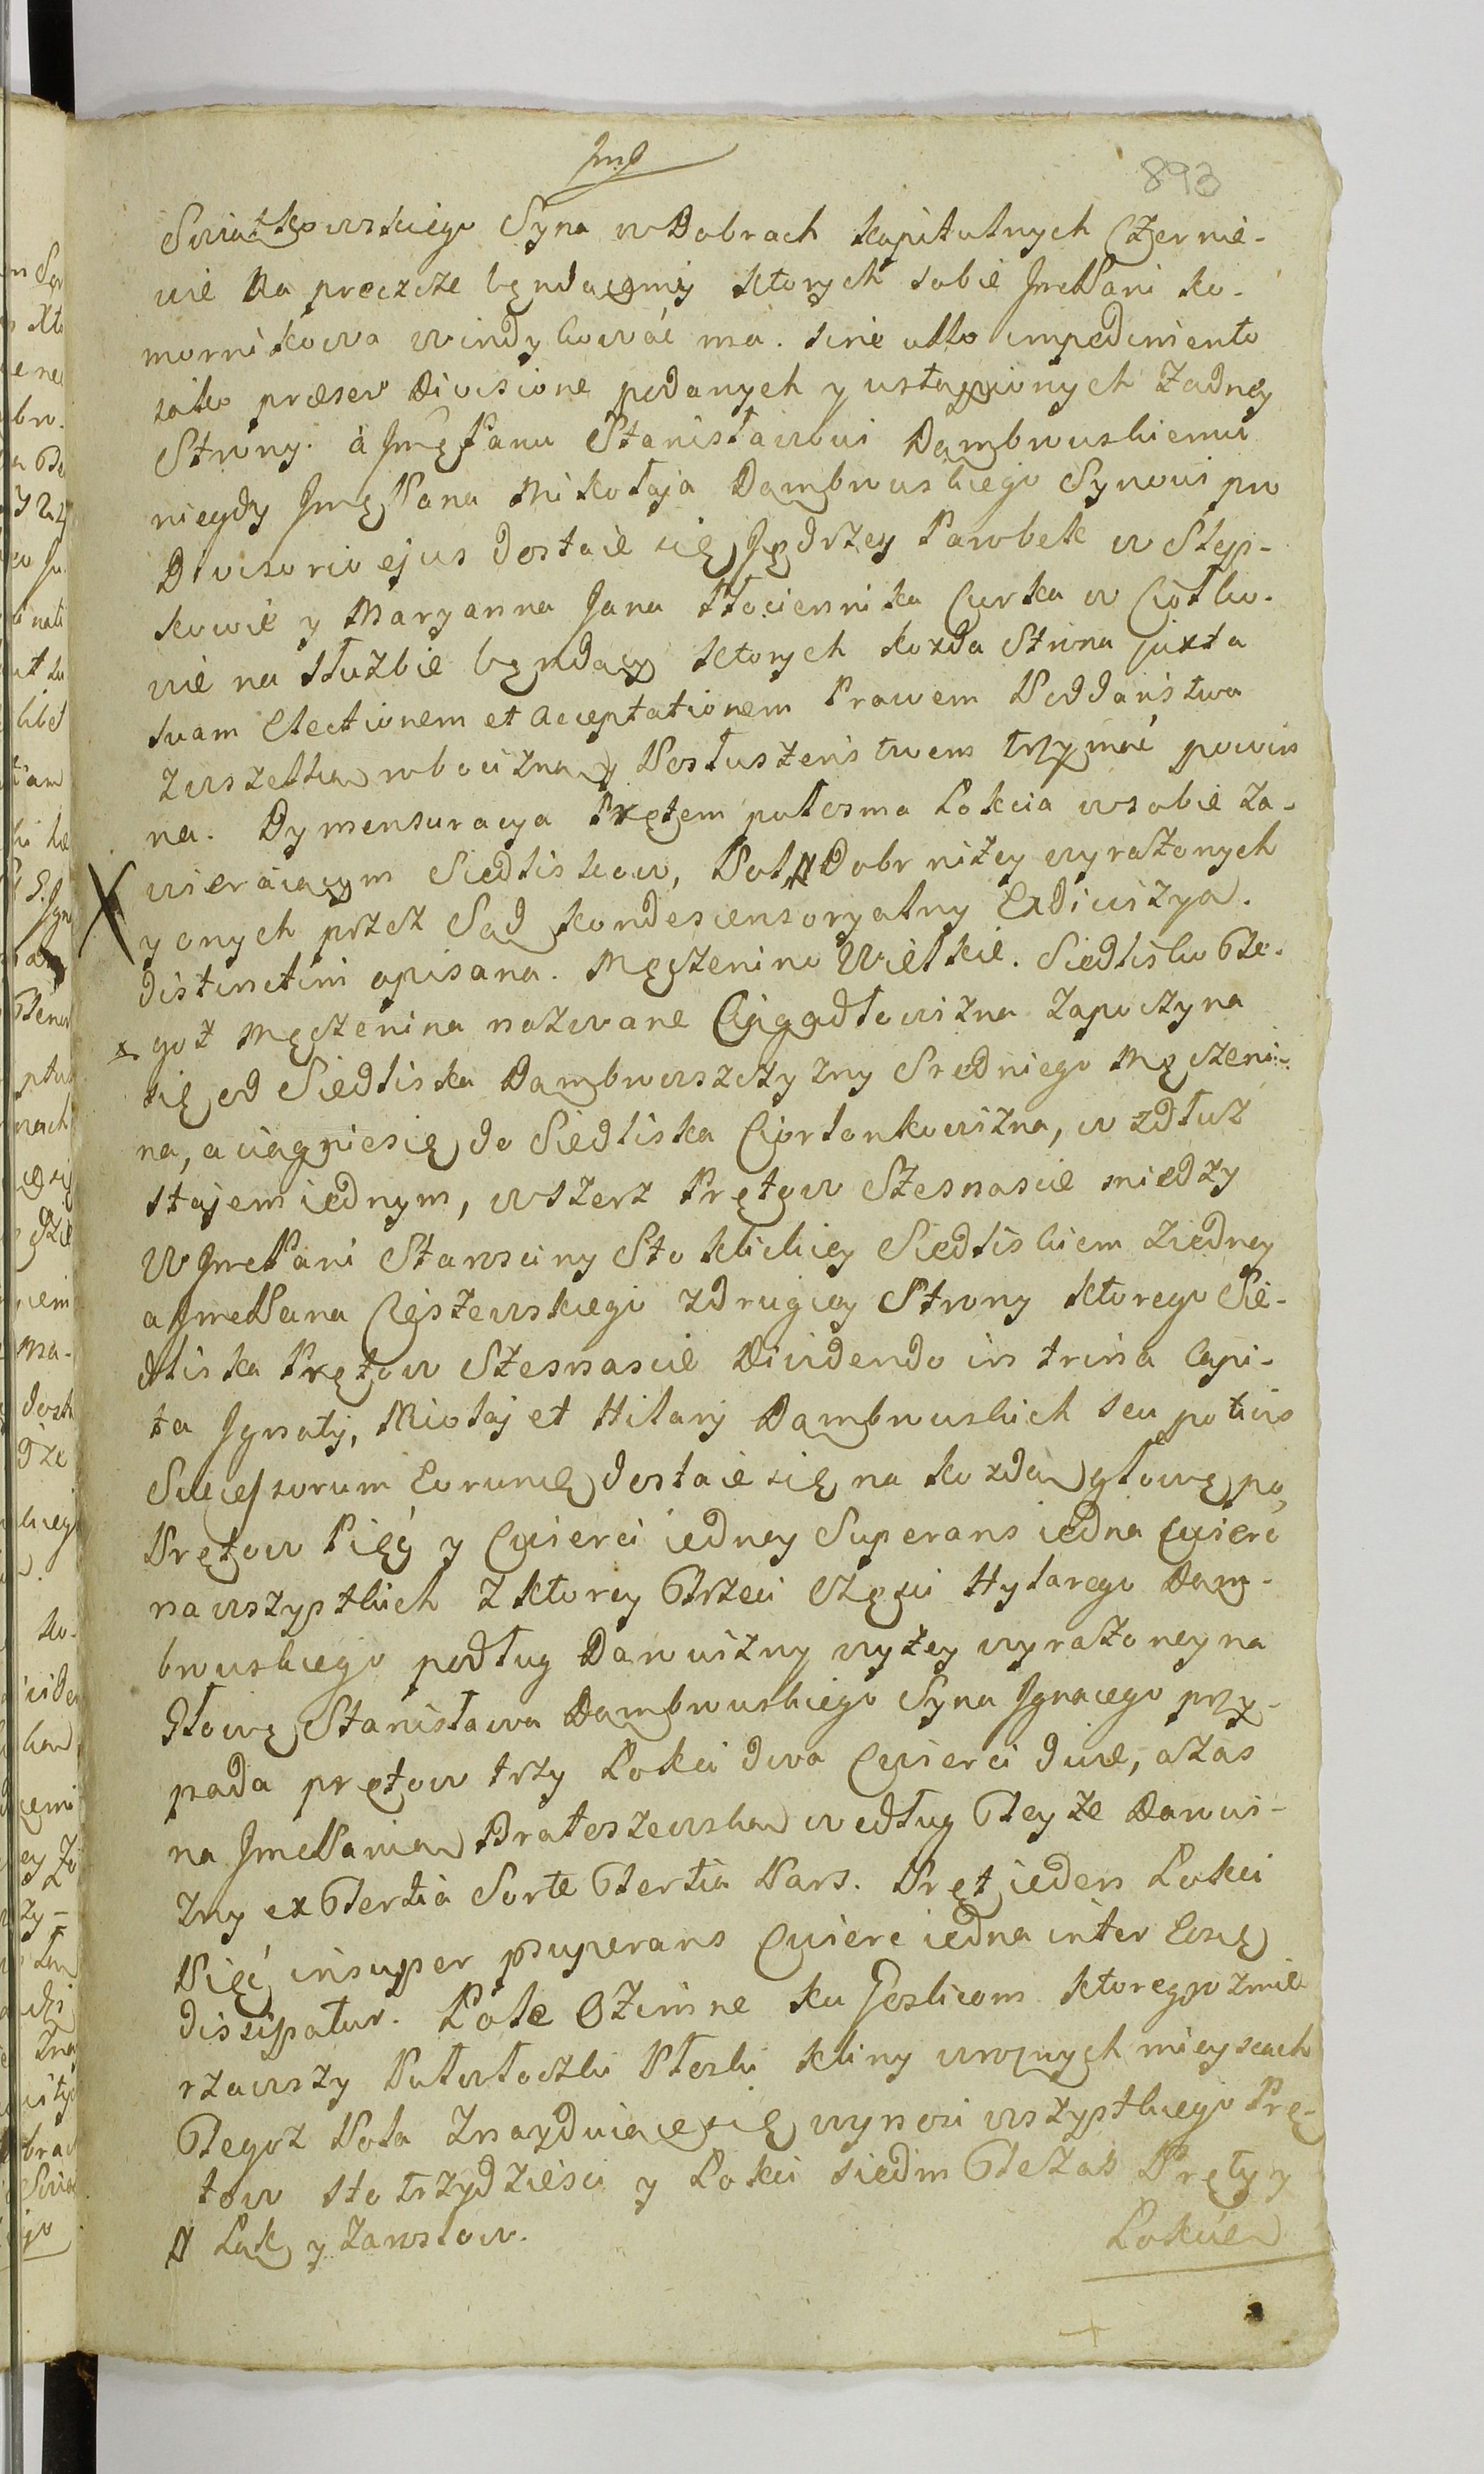 893
Swiątkowskiego Syna w Dobrach kapitulnych Czernie-
wie na przezcze będącemi ktorych sobie JmcPani Ko-
mornikowa windykować ma. sine ullo impedimento
jako præser Divisione podanych y ustąpionych żadney
Strony. à JmęPanu Stanisławowi Dąmbrowskiemu
niegdy JmęPana Mikołaja Dąmbrowskiego Synowi pro
Divisorio ejus dostaie się Jędrzey Parobek w Stęp-
kowie y Maryanna Jana Włociennika Curka w Ciołko-
wie na słuzbie będąca ktorych kozda Strona juxta
suam Electionem et Acceptationem Prawem Poddaństwa
zwszelką robocizną y Posłuszeństwem trzymać powin
na. Dymensuracya Prętem pułosma Łokcia w sobie za-
wieraiącym Siedliskow, Pol N Dobr niżey wyrażonych
y onych przez Sąd kondescensoryalny Exdiwizya.
distinctim opisana. Męczenino Wielkie. Siedlisko Te-
goż Męczenina nazwane Ciągadłowizna zapoczyna
się od Siedliska Dąmbrowszczyzny Sredniego Męczeni-
na, a ciągnie się do Siedliska Ciortonkowizna, w zdłuż
stajem iednym, wszerz Prętow Szesnascie między
WJmcPani Starosciny Stoklickiey Siedliskiem z iedney
a JmcPana Cięszewskiego z drugiey Strony ktorego Sie-
dliska Prętow Szesnascie Dividendo in trina Capi-
ta Jgnatij, Miołaj et Hilarij Dąmbrowskich seu potius
Successorum Eorumę dostaie się na kozdą głowę po,
Prętow Pięć y Cwierci iedney Superans iedna Cwierć
na wszystkich z ktorey Trzeci Częsci Hylarego Dąm-
browskiego podług Darowizny wyżey wyrażoney na
Głowę Stanisława Dąmbrowskiego Syna Jgnacego przy-
pada prętow trzy Łokci dwa Cwierci dwie, a zas
na JmcPanią Brateszewską według Teyże Darowi-
zny ex Tertia Sorte Tertia Pars. Pręt ieden Łokci
Pięć insuper superans Cwierć iedna inter Eosę
dissipatur. Pole Ozimne ku Goslicom ktorego zmie
rzawszy Pułwłoczki Płoski kliny w roznych mieyscach
Tegoż Pola znayduiące się wynosi wszystkiego Prę-
tow sto trzydzieści y Łokci siedm Te zas Pręty y
N Łąk y Zarostow.
Łokcie